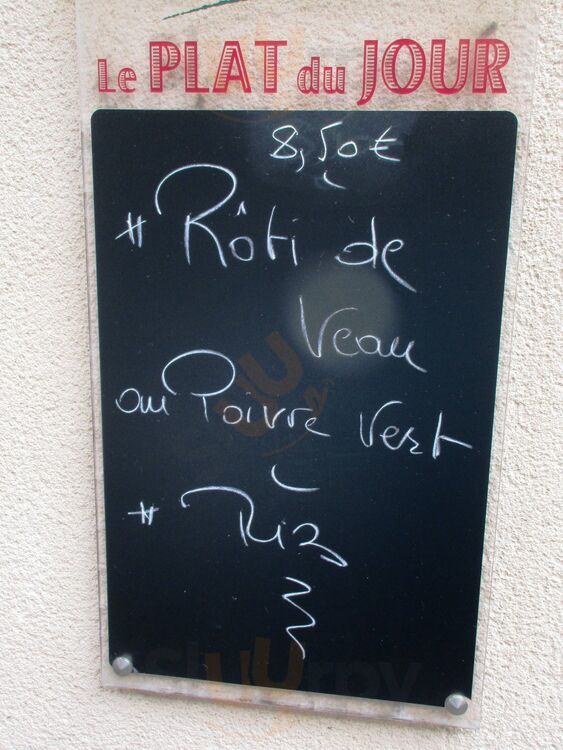 Le PLAT du JOUR
8,50€
# Rôti de
Veau
au Poivre Vert
# Riz